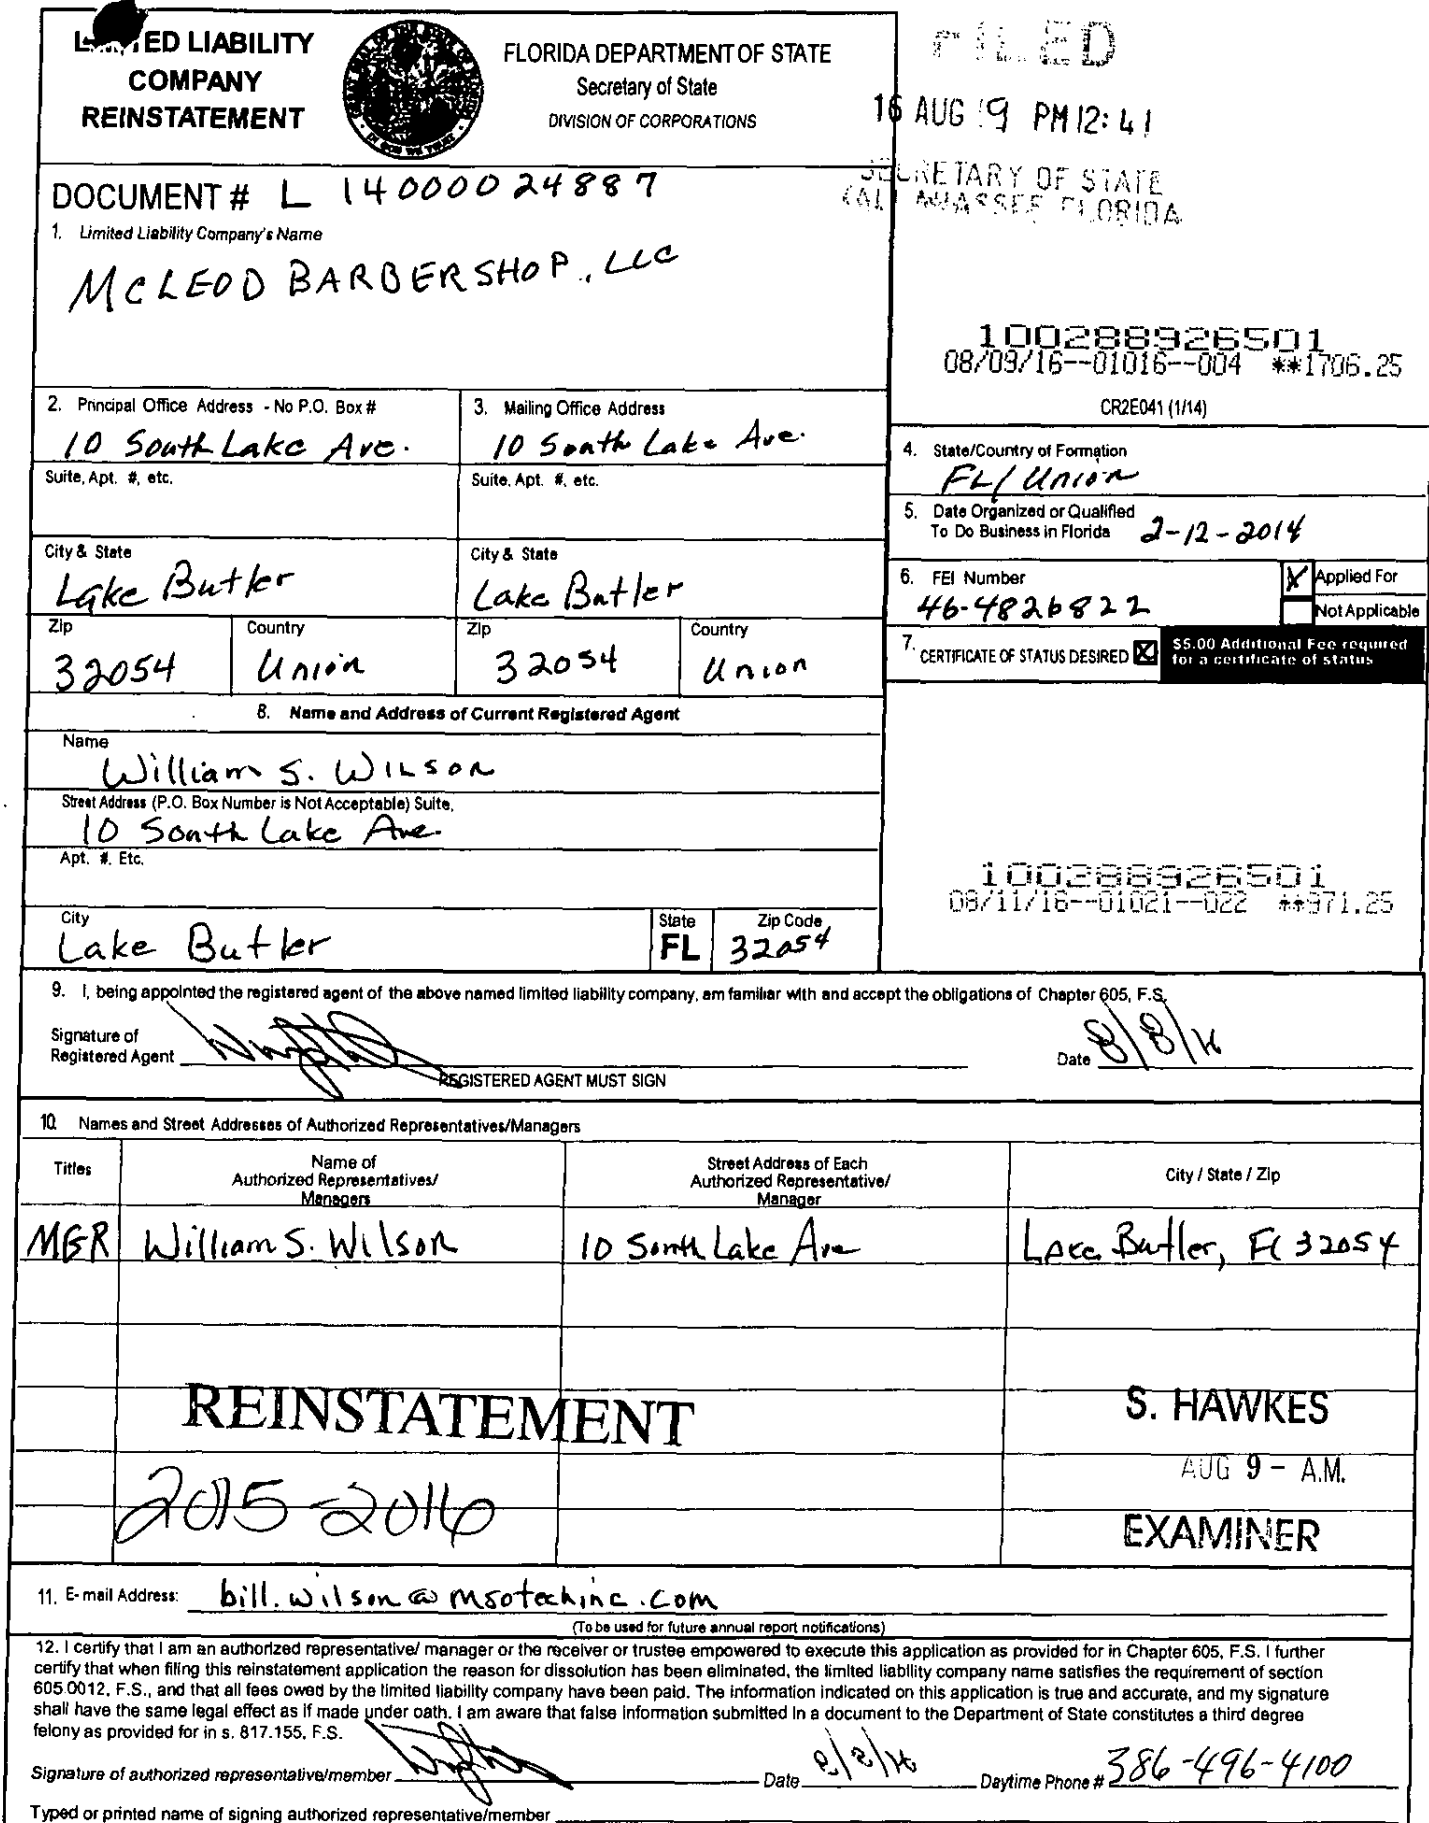 LIMITED LIABILITY
COMPANY
REINSTATEMENT
FLORIDA DEPARTMENT OF STATE
Secretary of State
DIVISION OF CORPORATIONS
FILED
16 AUG 9 PM 12: 41
SECRETARY OF STATE
TALLAHASSEE FLORIDA
DOCUMENT # L 14000024887
1. Limited Liability Company's Name
McLEOD BARBERSHOP, LLC
100288926501
08/09/16--01016--004 **1706.25
CR2E041 (1/14)
2. Principal Office Address - No P.O. Box #
10 South Lake Ave.
3. Mailing Office Address
10 South Lake Ave.
Suite, Apt. #, etc.
Suite, Apt. #, etc.
City & State
Lake Butler
City & State
Lake Butler
Zip
32054
Country
Union
Zip
32054
Country
Union
4. State/Country of Formation
FL/Union
5. Date Organized or Qualified
To Do Business in Florida 2-12-2014
6. FEI Number
46-4826822
X Applied For
Not Applicable
7. CERTIFICATE OF STATUS DESIRED X
$5.00 Additional Fee required
for a certificate of status
8. Name and Address of Current Registered Agent
Name
William S. Wilson
Street Address (P.O. Box Number is Not Acceptable) Suite,
10 South Lake Ave.
Apt. #. Etc.
City
Lake Butler
State
FL
Zip Code
32054
100288926501
08/11/16--01021--022 **971.25
9. I, being appointed the registered agent of the above named limited liability company, am familiar with and accept the obligations of Chapter 605, F.S.
Signature of
Registered Agent
Date 8/8/16
REGISTERED AGENT MUST SIGN
10. Names and Street Addresses of Authorized Representatives/Managers
Titles
Name of
Authorized Representatives/
Managers
Street Address of Each
Authorized Representative/
Manager
City / State / Zip
MGR William S. Wilson 10 South Lake Ave Lake Butler, FL 32054
REINSTATEMENT
2015-2016
S. HAWKES
AUG 9 - A.M.
EXAMINER
11. E-mail Address: bill.wilson@msotechinc.com
(To be used for future annual report notifications)
12. I certify that I am an authorized representative/ manager or the receiver or trustee empowered to execute this application as provided for in Chapter 605, F.S. I further
certify that when filing this reinstatement application the reason for dissolution has been eliminated, the limited liability company name satisfies the requirement of section
605.0012, F.S., and that all fees owed by the limited liability company have been paid. The information indicated on this application is true and accurate, and my signature
shall have the same legal effect as if made under oath. I am aware that false information submitted in a document to the Department of State constitutes a third degree
felony as provided for in s. 817.155, F.S.
Signature of authorized representative/member Date 8/8/16 Daytime Phone # 386-496-4100
Typed or printed name of signing authorized representative/member